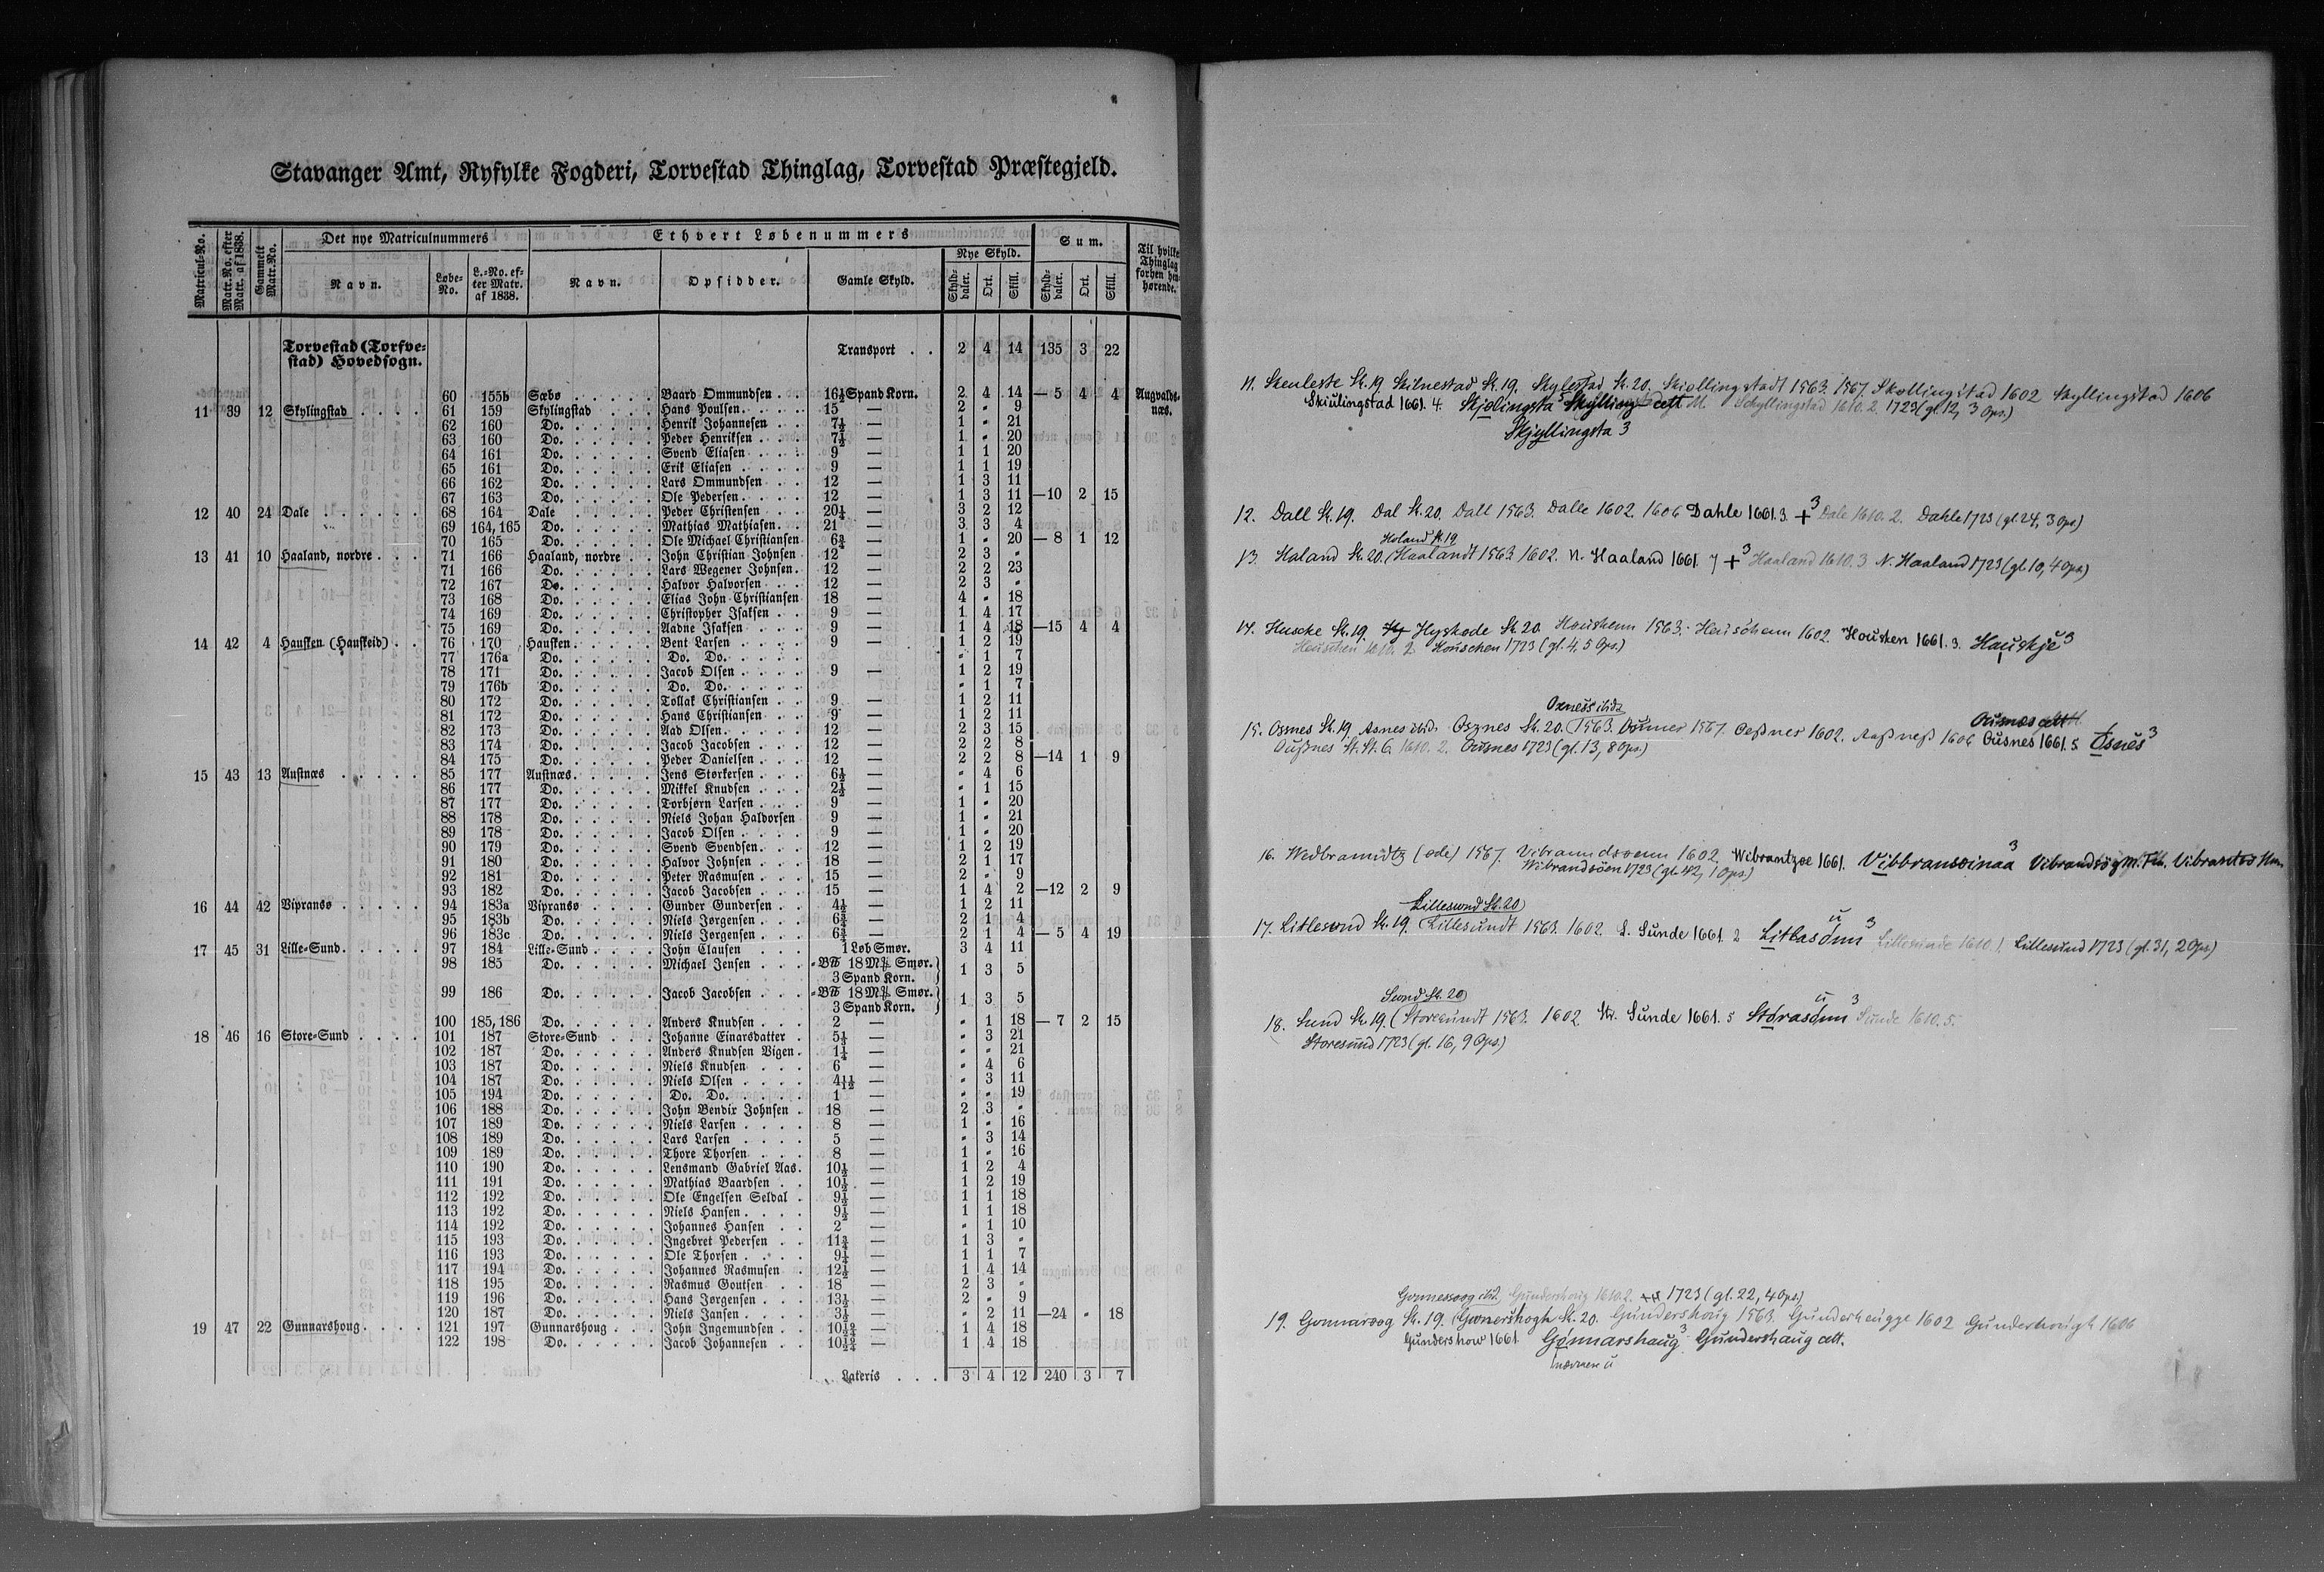 Stavanger Amt, Ryfylke Fogderi, Torvestad Thinglag, Torvestad Præstegjeld.
Matricul-No. Matr.No. efter Matr. af 1838. Gammelt Matr.No. Det nye Matriculnummers Ethvert Løbenummers Sum. Til hvilke Thinglag forhen henhørende.
Navn. Løbe-No. L.-No. efter Matr. af 1838. Navn. Opsidder. Gamle Skyld. Nye Skyld. Skylddaler. Ort. Skill. Skylddaler. Ort. Skill.
Torvestad (Torfvestad) Hovedsogn. Transport . . 2 4 14 135 3 22
60 155b Sæbø . . . . . Baard Ommundsen . 16½ Spand Korn. 2 4 14 — 5 4 4 Augvaldsnæs.
11 39 12 Skylingstad . . . . 61 159 Skylingstad . . . Hans Poulsen. . . . 15 — 2 " 9
62 160 Do. . . . . . Henrik Johannesen . . 7½ — 1 " 21
63 160 Do. . . . . . Peder Henriksen . . . 7½ — 1 " 20
64 161 Do. . . . . . Svend Eliasen . . . . 9 — 1 1 20
65 161 Do. . . . . . Erik Eliasen . . . . 9 — 1 1 19
66 162 Do. . . . . . Lars Ommundsen . . 12 — 1 3 11
67 163 Do. . . . . . Ole Pedersen . . . . 12 — 1 3 11 —10 2 15
12 40 24 Dale . . . . . . 68 164 Dale . . . . . Peder Christensen . . 20¼ — 3 2 12
69 164, 165 Do. . . . . . Mathias Mathiasen. . . 21 — 3 3 4
70 165 Do. . . . . . Ole Michael Christiansen 6¾ — 1 " 20 — 8 1 12
13 41 10 Haaland, nordre . . . 71 166 Haaland, nordre . . John Christian Johnsen 12 — 2 3 "
71 166 Do. . . . . . Lars Wegener Johnsen. 12 — 2 2 23
72 167 Do. . . . . . Halvor Halvorsen . . 12 — 2 3 "
73 168 Do. . . . . . Elias John Christiansen 18 — 4 " 18
74 169 Do. . . . . . Christopher Isaksen . . 9 — 1 4 17
75 169 Do. . . . . . Aadne Isaksen . . . 9 — 1 4 18 —15 4 4
14 42 4 Hausken (Hauskeid) . . 76 170 Hausken. . . . . Bent Larsen . . . . 9 — 1 2 19
77 176a Do. . . . . . Do. Do. . . . . . " 1 7
78 171 Do. . . . . . Jacob Olsen . . . . 9 — 1 2 19
79 176b Do. . . . . . Do. Do. . . . . . " 1 7
80 172 Do. . . . . . Tollak Christiansen . . 9 — 1 2 11
81 172 Do. . . . . . Hans Christiansen . . 9 — 1 2 11
82 173 Do. . . . . . Aad Olsen. . . . . 12 — 2 3 15
83 174 Do. . . . . . Jacob Jacobsen . . . 12 — 2 2 8
84 175 Do. . . . . . Peder Danielsen . . . 12 — 2 2 8 —14 1 9
15 43 13 Austnæs . . . . . 85 177 Austnæs. . . . . Jens Størkersen . . . 6½ — " 4 6
86 177 Do. . . . . . Mikkel Knudsen . . . 2½ — " 1 15
87 177 Do. . . . . . Torbjørn Larsen . . . 9 — 1 " 20
88 178 Do. . . . . . Niels Johan Haldorsen 9 — 1 " 21
89 178 Do. . . . . . Jacob Olsen . . . . 9 — 1 " 20
90 179 Do. . . . . . Svend Svendsen. . . 12 — 1 2 19
91 180 Do. . . . . . Halvor Johnsen . . . 18 — 2 1 17
92 181 Do. . . . . . Peter Rasmusen . . . 15 — 2 " 9
93 182 Do. . . . . . Jacob Jacobsen . . . 15 — 1 4 2 —12 2 9
16 44 42 Vipransø . . . . . 94 183a Vipransø . . . . Gunder Gundersen . . 4½ — 1 2 11
95 183b Do. . . . . . Niels Jørgensen . . . 6¾ — 2 1 4
96 183c Do. . . . . . Niels Jørgensen . . . 6¾ — 2 1 4 — 5 4 19
17 45 31 Lille-Sund. . . . . 97 184 Lille-Sund . . . . John Clausen . . . 1 Løb Smør. 3 4 11
98 185 Do. . . . . . Michael Jensen . . . " B℔ 18 M℔ Smør. 3 Spand Korn. 1 3 5
99 186 Do. . . . . . Jacob Jacobsen . . . " B℔ 18 M℔ Smør. 3 Spand Korn. 1 3 5
100 185, 186 Do. . . . . . Anders Knudsen . . . 2 — " 1 18 — 7 2 15
18 46 16 Store-Sund . . . . 101 187 Store-Sund . . . Johanne Einarsdatter . 5⅓ — " 3 21
102 187 Do. . . . . . Anders Knudsen Vigen. 1¼ — " " 21
103 187 Do. . . . . . Niels Knudsen . . . 6 — " 4 6
104 187 Do. . . . . . Niels Olsen . . . . 4 11/12 — " 3 11
105 194 Do. . . . . . Do. Do. . . . . . 1 — " " 19
106 188 Do. . . . . . John Bendix Johnsen . 18 — 2 3 "
107 189 Do. . . . . . Niels Larsen . . . . 8 — 1 " 16
108 189 Do. . . . . . Lars Larsen . . . . 5 — " 3 14
109 189 Do. . . . . . Thore Thorsen . . . 8 — 1 " 16
110 190 Do. . . . . . Lensmand Gabriel Aas. 10½ — 1 2 4
111 191 Do. . . . . . Mathias Baardsen . . 10½ — 1 2 19
112 192 Do. . . . . . Ole Engelsen Seldal . 9½ — 1 1 18
113 192 Do. . . . . . Niels Hansen . . . . 9½ — 1 1 18
114 192 Do. . . . . . Johannes Hansen . . 2 — " 1 10
115 193 Do. . . . . . Ingebret Pedersen . . 11¾ — 1 3 "
116 193 Do. . . . . . Ole Thorsen . . . . 9¼ — 1 1 7
117 194 Do. . . . . . Johannes Rasmusen . 12½ — 1 4 14
118 195 Do. . . . . . Rasmus Goutsen . . 18 — 2 3 "
119 196 Do. . . . . . Hans Jørgensen . . . 13½ — 2 " 9
120 187 Do. . . . . . Niels Jansen . . . . 3½ — " 2 11 —24 " 18
19 47 22 Gunnarshoug . . . . 121 197 Gunnarshoug . . . John Ingemundsen . . 10 19/24 — 1 4 18
122 198 Do. . . . . . Jacob Johannesen . . 10 19/24 — 1 4 18
Lateris . . . 3 4 12 240 3 7
11. Skeuleste St. 19 Skilnestad St. 19. Skylestad St. 20. Skiollingstadt 1563. 1567. Skollingstad 1602 Skyllingstad 1606
Skiulingstad 1661. 4. Skjolingsta 3 Skylling Schyllingstad 1610. 2. 1723 (gl. 12, 3 Ops.)
Skjyllingsta 3
12. Dall St. 19. Dal St. 20. Dall 1563. Dalle 1602. 1606 Dahle 1661. 3. + 3 Dale 1610. 2. Dahle 1723 (gl. 24, 3 Ops)
Holand St. 19
13. Haland St. 20. Haalandt 1563 1602. N. Haaland 1661. 7 + 3 Haaland 1610. 3 N. Haaland 1723 (gl. 10, 4 Ops.)
14. Huscke St. 19. Hyskede St. 20. Houskenn 1563. Heuschenn 1602. Housken 1661. 3. Hauskje 3
Heuschen 1610. 2. Houschen 1723 (gl. 4, 5 Ops.)
Oxness ibid.
15. Osmes St. 19. Asnes ibid. Osznes St. 20. 1563. Ousner 1567. Oeßnes 1602. Aaßneß 1606 Ousnes 1661. 5. Osnes 3
Oußnes St. St. 6. 1610. 2. Ousnes 1723 (gl. 13, 8 Ops.)
16. Wedbramdtz (øde) 1567. Vibramdsoenn 1602. Wibrantzøe 1661. Vibbransoinaa 3 Vibrandsö
Wibrandsöen 1723 (gl. 42, 1 Ops.)
Lillesund St. 20
17. Litlesund St. 19. Lillesundt 1563. 1602. L. Sunde 1661. 2 Litlasonn 3 Lillesunde 1610. 1. Lillesund 1723 (gl. 31, 2 Ops)
Sund St. 20
18. Sund St. 19. (Storesundt 1563. 1602. St. Sunde 1661. 5 Storasonn 3 Sunde 1610. 5.
Storesund 1723 (gl. 16, 9 Ops.)
Gonnessog ibid. Gundershoug 1610. 2. 1723 (gl. 22, 4 Ops.)
19. Gonnarsog St. 19. Gonershogh St. 20. Gundershoug 1563. Gundersheugge 1602 Gundershough 1606
Gundershow 1661. Gonnarshaug 3. Gundershaug ell.
nærmere u